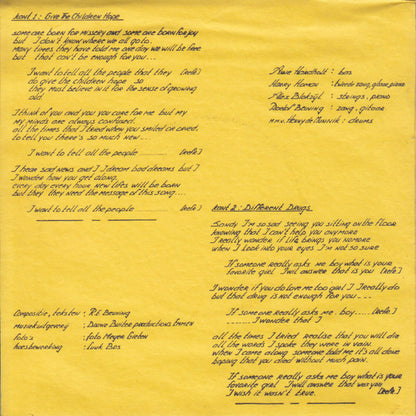 kant 1: Give The Children Hope
some are born for missery and some are born for joy
but I don't know where we all go to.
Many times they have told me one day we will be free
but that can't be enough for you...
I want to tell all the people that they (refr.)
do give the children hope so
they must believe in it for the sense of growing
old.
I think of you and you you care for me but my
my minds one always confused.
all the times that I tried when you smiled or cried,
to tell you there's so much new...
I want to tell all the people (refr.)
I hear sad news and I dream bad dreams but I
I wonder how you get along.
every day every hour new lifes will be born
but they they need the message of this song...
I want to tell all the people (refr.)
Compositie, teksten: R.E. Beuving
muziekuitgeverij: Douwe Bulten productions Emmen
foto's: foto Meyer Gieten
hoesbewerking: Luuk Bos
: bas
Harry Homan : tweede zang, gitaar, piano
: strings, piano
Roelof Beuving : zang, gitaar
m.m.v. : drums
kant 2: Different Drugs
Sandy I'm so sad seeing you sitting on the floor
knowing that I can't help you anymore
I really wonder if life brings you no more
when I look into your eyes I'm not so sure
If someone really asks me boy what is your
favorite girl I will answer that is you (refr.)
I wonder if you do love me too girl I I really do
but that drug is not enough for you...
If some one really asks me boy ..... (refr.)
......I wonder that I
all the times I tried realise that you will die
all the words I spoke they were in vain.
when I came along someone told me it's all done
hoping that you died without much pain.
If someone really asks me boy what is your
favorite girl I will answer that was you
I wish it wasn't true. (refr.)